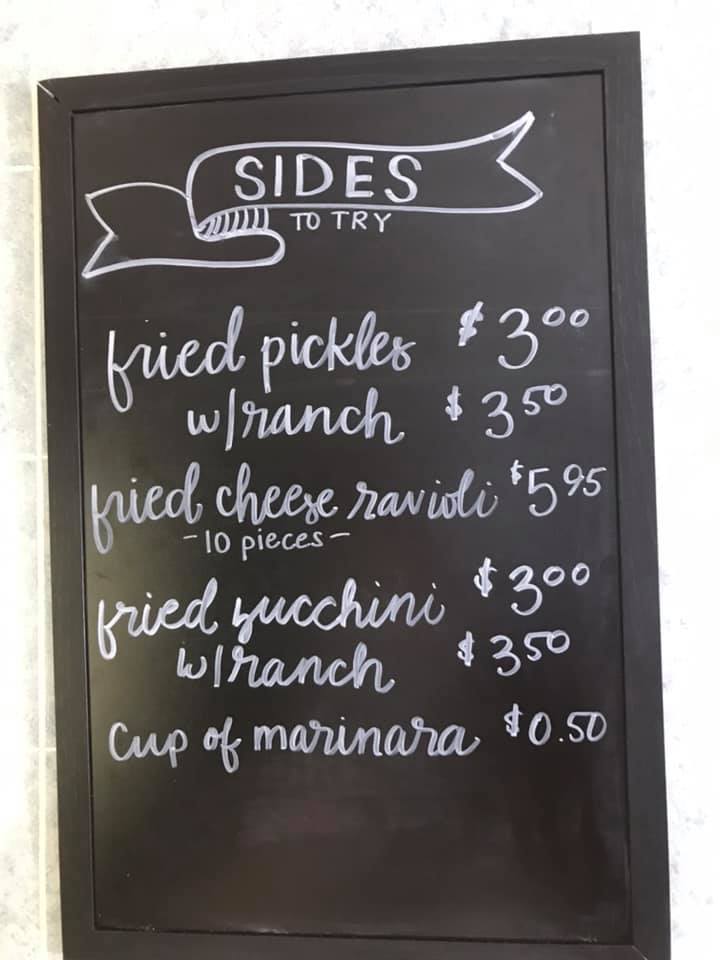 SIDES
TO TRY
fried pickles $3.00
w/ranch $3.50
fried cheese ravioli $5.95
-10 pieces-
fried zucchini $3.00
w/ranch $3.50
cup of marinara $0.50